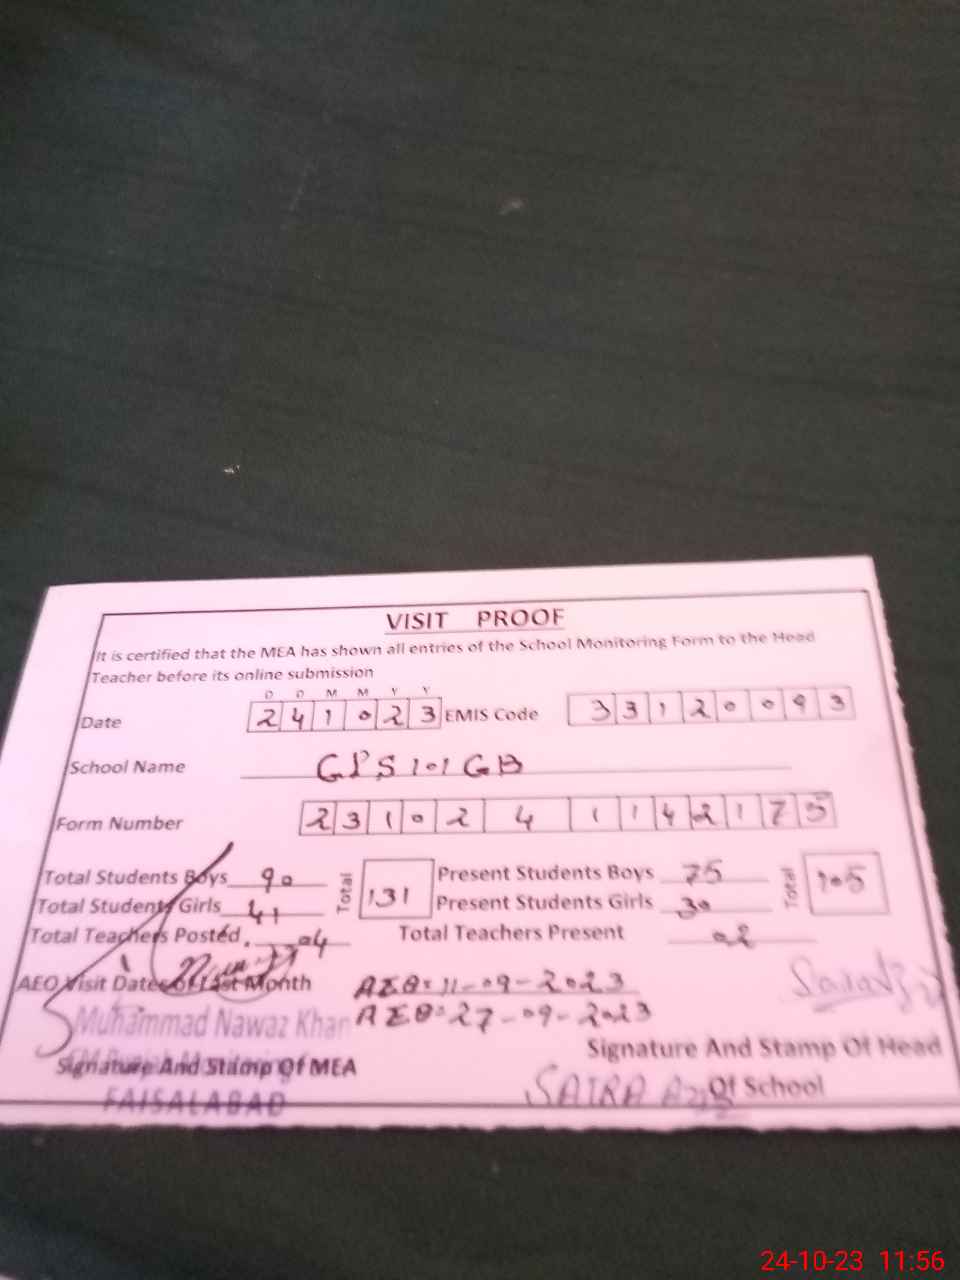 VISIT PROOF
It is certified that the MEA has shown all entries of the School Monitoring Form to the Head
Teacher before its online submission
D D M M Y Y
Date 2 4 1 0 2 3 EMIS Code 3 3 1 2 0 0 9 3
School Name GPS 101 GB
Form Number 2 3 1 0 2 4 1 1 4 2 1 7 5
Total Students Boys 90 Total 131 Present Students Boys 75 Total 105
Total Students Girls 41 Present Students Girls 30
Total Teachers Posted 04 Total Teachers Present 02
AEO Visit Dates of Last Month AEO: 11-09-2023
Muhammad Nawaz Khan AEO: 27-09-2023
Signature And Stamp Of Head
Signature And Stamp Of MEA
SAIRA Aziz Of School
FAISALABAD
24-10-23 11:56